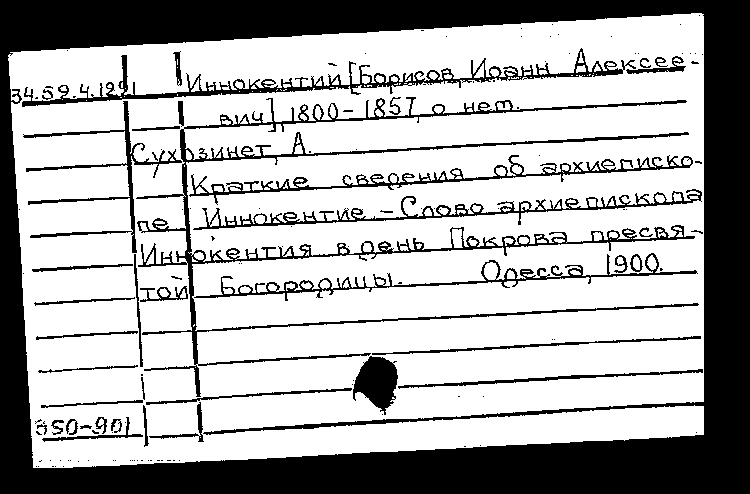 34.59.4.129 Иннокентий [Борисов, Иоанн Алексее-
вич], 1800-1857, о нет.
Сухозинет, А.
Краткие сведения об архиеписко-
пе Иннокентие. - Слово архиепископа
Иннокентия в день Покрова пресвя-
той Богородицы. Одесса, 1900.
350-901